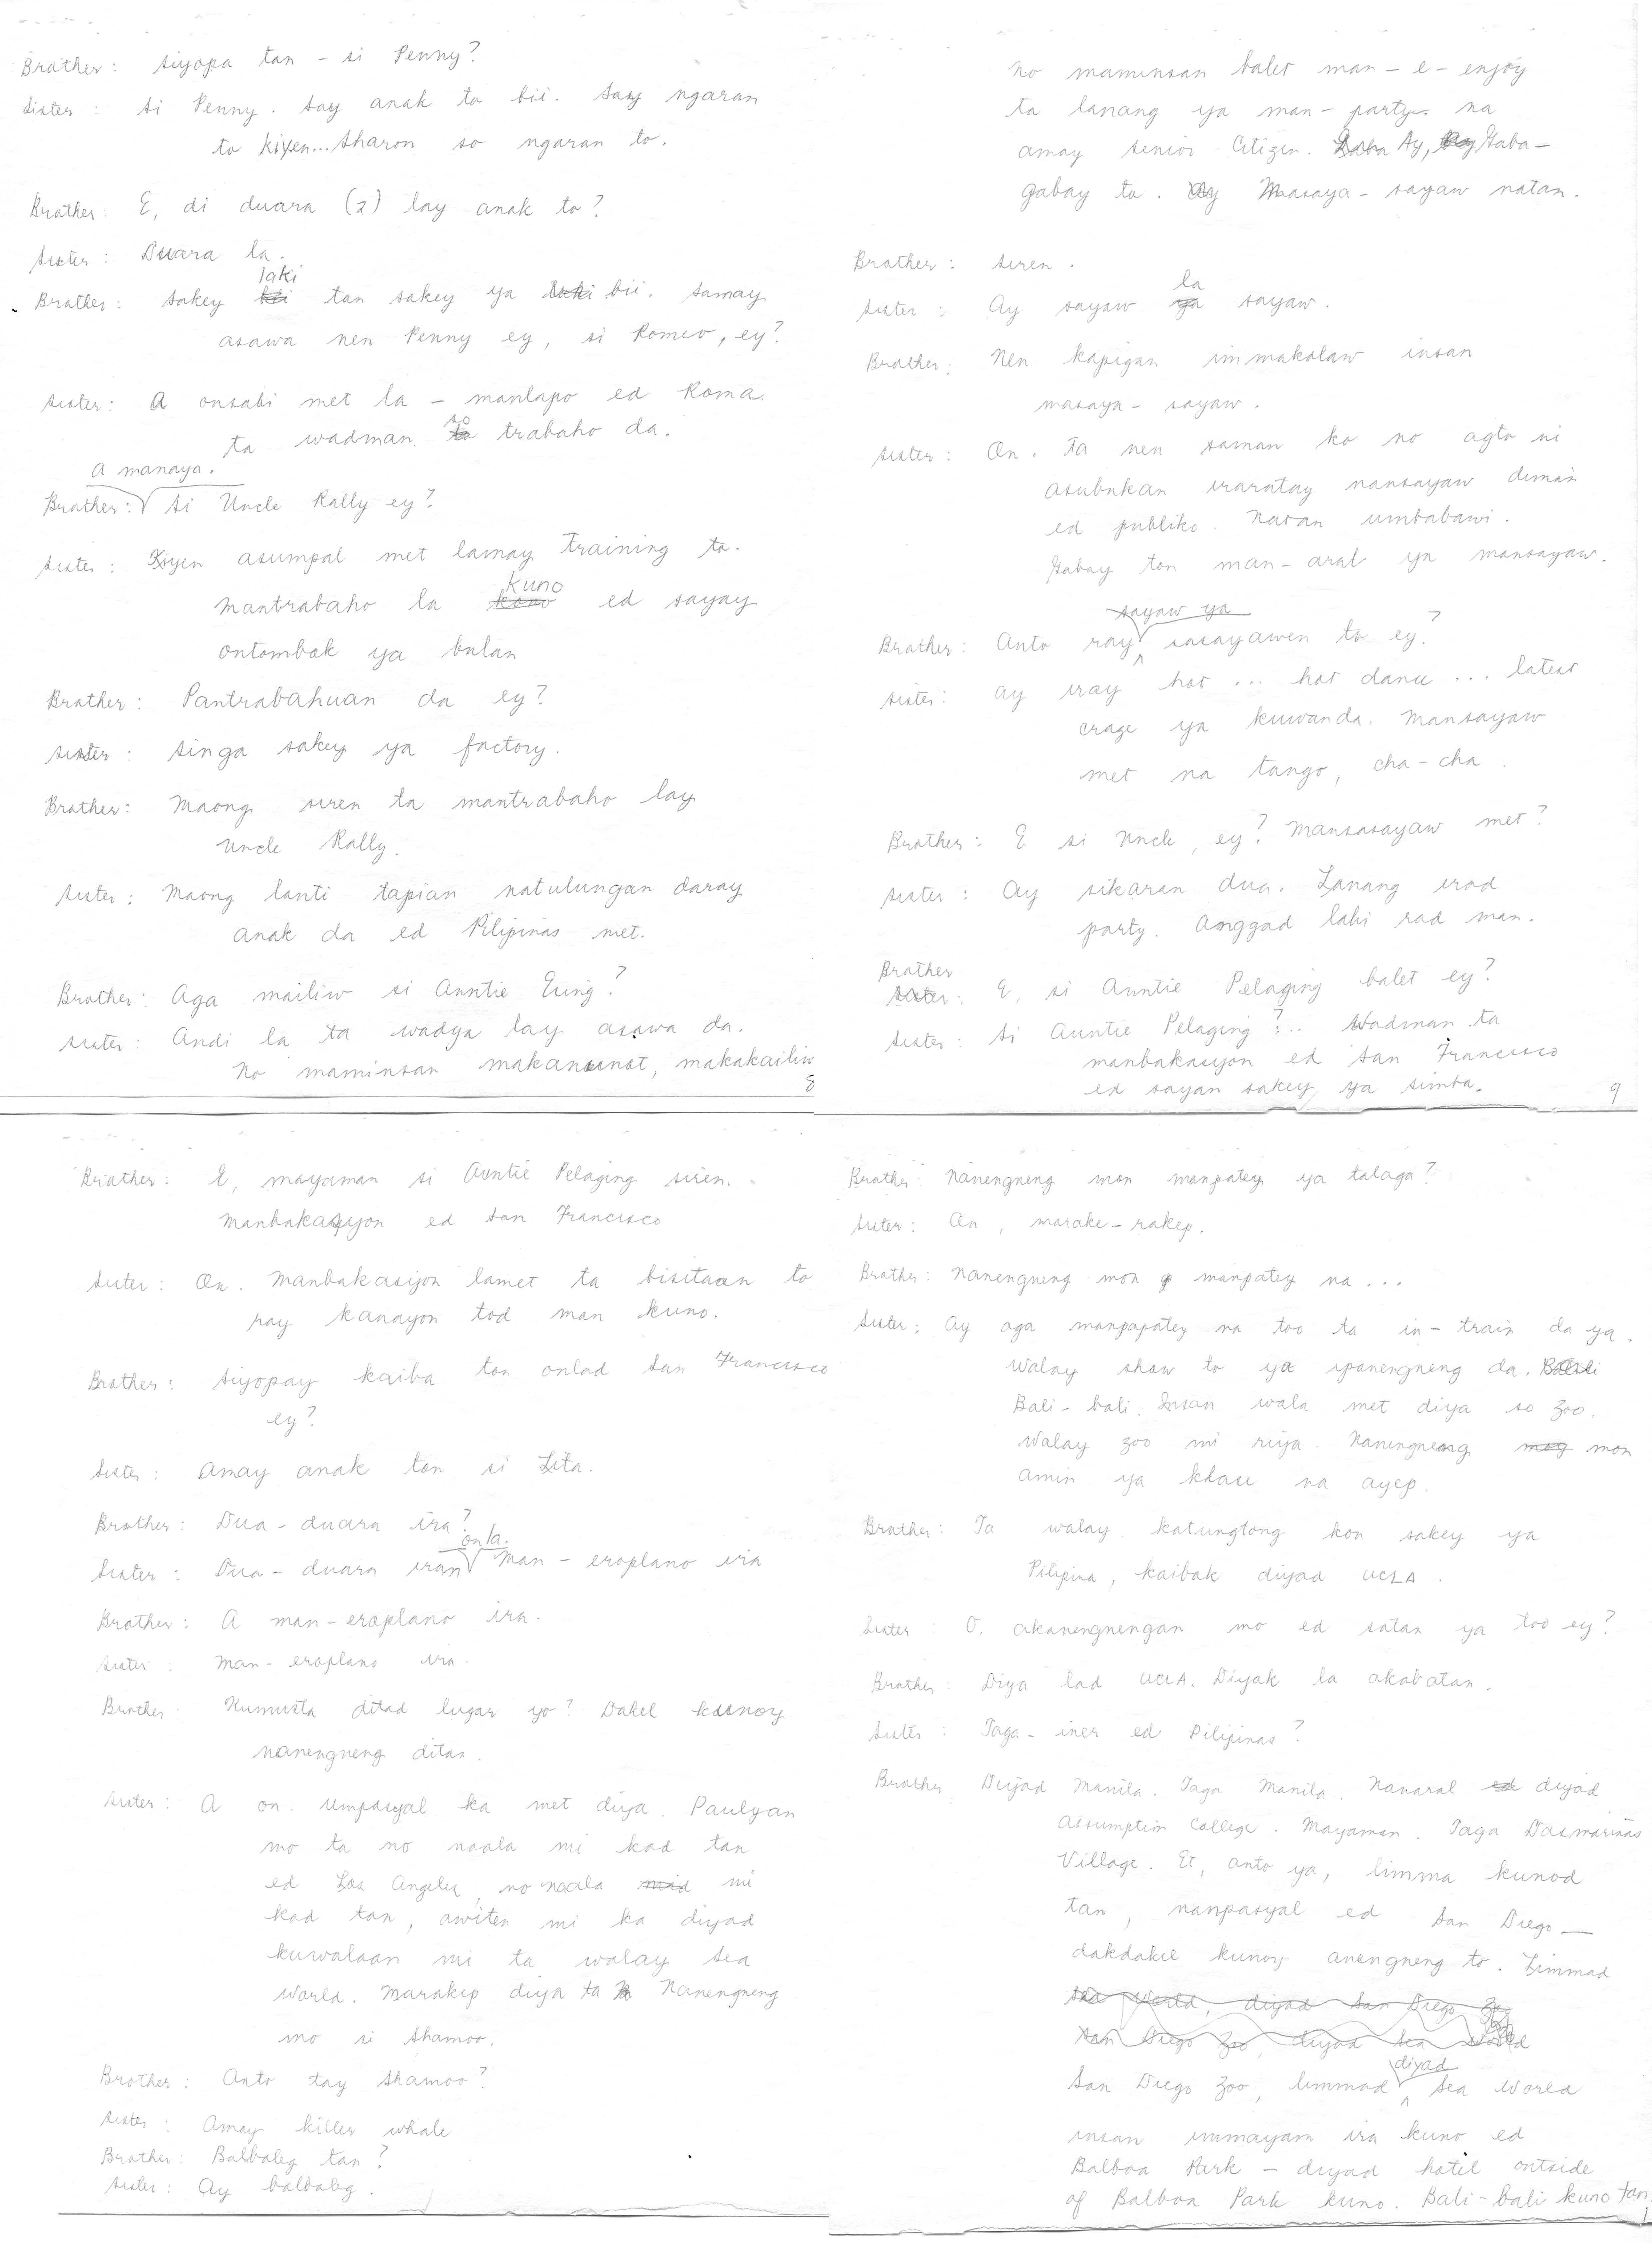 Brother: Siyopa tan - si Penny?
Sister: Si Penny. Say anak to bii. Say ngaran
to kiyen... Sharon so ngaran to.
Brother: E, di duara (2) lay anak to?
Sister: Duara la.
laki
Brother: Sakey tan sakey ya bii. Samay
asawa nen Penny ey, si Romeo, ey?
Sister: A onsabi met la - manlapo ed Roma.
so
ta wadman trabaho da.
A manaya.
Brother: Si Uncle Rally ey?
Sister: Kiyen asumpal met lamay training to.
kuno
Mantrabaho la ed sayay
ontombok ya bulan
Brother: Pantrabahuan da ey?
Sister: Singa sakey ya factory.
Brother: Maong siren ta mantrabaho lay
Uncle Rally.
Sister: Maong lanti tapian natulungan daray
anak da ed Pilipinas met.
Brother: Aga mailiw si Auntie Eung?
Sister: Andi la ta wadya lay asawa da.
No maminsan makanunot, makakailiw
8
no maminsan balet man-e-enjoy
ta lanang ya man-party na
amay Senior Citizen. Ay, Gaba-
gabay to. Masaya-sayaw natan.
Brother: Siren.
la
Sister: Ay sayaw sayaw.
Brother: Nen kapigan immakalaw insan
masaya-sayaw.
Sister: On. Ta nen saman ko no agto ni
asubukan iraratay nansayaw diman
ed publiko. Natan umbabawi.
Gabay ton man-aral ya mansayaw.
sayaw ya
Brother: Anto ray sasayawen to ey?
Sister: Ay iray hot ... hot dance ... latest
craze ya kuwanda. Mansayaw
met na tango, cha-cha.
Brother: E si Uncle, ey? Mansasayaw met?
Sister: Ay sikaran dua. Lanang irad
party. Anggad labi rad man.
Brother
: E, si Auntie Pelaging balet ey?
Sister: Si Auntie Pelaging?.. Wadman ta
manbakasyon ed San Francisco
ed sayan sakey ya simba.
9
Brother: E, mayaman si Auntie Pelaging siren.
Manbakasyon ed San Francisco
Sister: On. Manbakasyon lamet ta bisitaan to
ray kanayon tod man kuno.
Brother: Siyopay kaiba ton onlad San Francisco
ey?
Sister: Amay anak ton si Lita.
Brother: Dua-duara ira?
onla.
Sister: Dua-duara iran Man-eroplano ira
Brother: A man-eroplano ira.
Sister: Man-eroplano ira.
Brother: Kumusta ditad lugar yo? Dakel kunoy
nanengneng ditan.
Sister: A on. Umpasyal ka met diya. Paulyan
mo ta no naala mi kad tan
ed Los Angeles, no naala mi
kad tan, awiten mi ka diyad
kuwalaan mi ta walay Sea
World. Marakep diya ta Nanengneng
mo si Shamoo.
Brother: Anto tay Shamoo?
Sister: Amay killer whale
Brother: Balbaleg tan?
Sister: Ay balbaleg.
Brother: Nanengneng mon manpatey ya talaga?
Sister: On, marake-rakep.
Brother: Nanengneng mon manpatey na...
Sister: Ay aga manpapatey na too ta in-train da ya.
Walay show to ya ipanengneng da.
Bali-bali. Insan wala met diya so zoo.
Walay zoo mi riya. Nanengneng mon
amin ya klase na ayep.
Brother: Ta walay katungtong kon sakey ya
Pilipina, kaibak diyad UCLA.
Sister: O, akanengnengan mo ed satan ya too ey?
Brother: Diya lad UCLA. Diyak la akabatan.
Sister: Taga-iner ed Pilipinas?
Brother: Diyad Manila. Taga Manila. Nanaral diyad
Assumption College. Mayaman. Taga Dasmariñas
Village. Et, anto ya, limma kunod
tan, nanpasyal ed San Diego—
dakdakel kunoy anengneng to. Limmad
diyad
San Diego Zoo, limmad Sea World
insan immayam ira kuno ed
Balboa Park - diyad hotel outside
of Balboa Park kuno. Bali-bali kuno tan